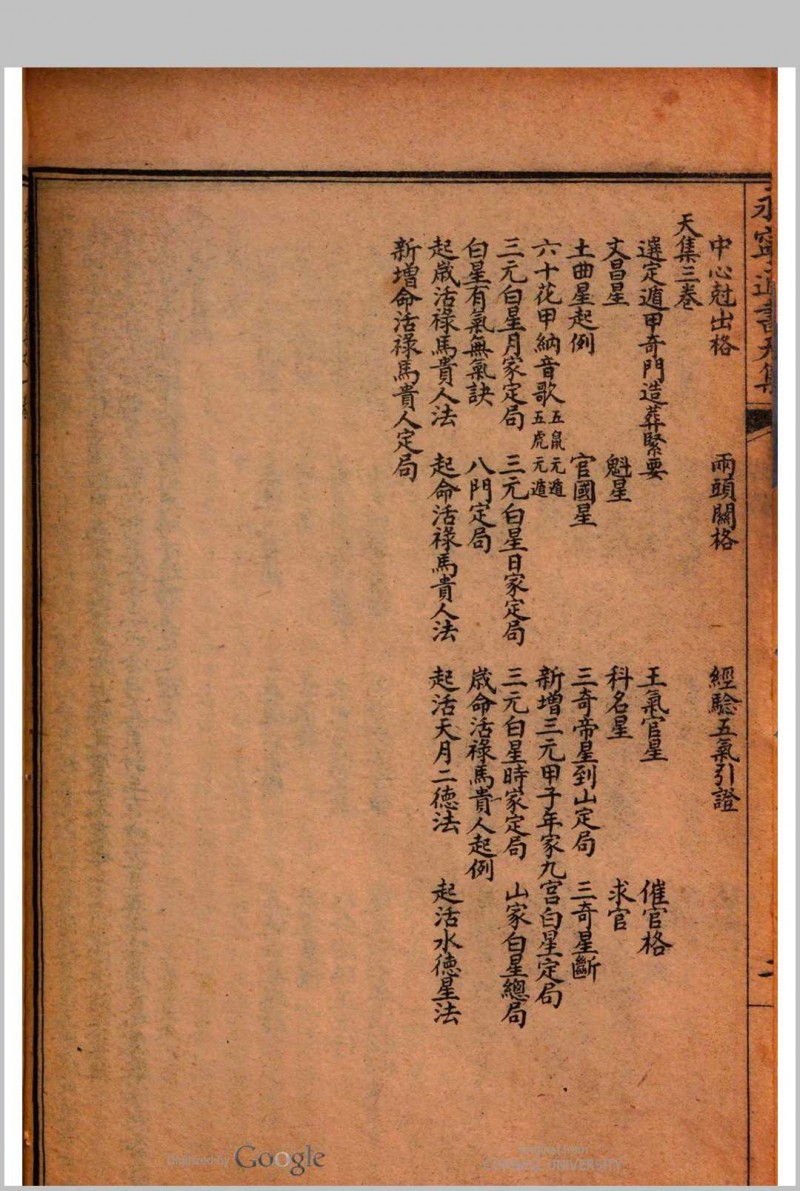 永寧通書天集
中心尅出格 兩頭關格 經驗五氣引證
天集三卷
選定遁甲奇門造葬緊要 王氣官星 催官格
文昌星 魁星 科名星 求官
土曲星起例 官國星 三奇帝星到山定局 三奇星斷
六十花甲納音歌 五鼠元遁 五虎元遁 新增三元甲子年家九宮白星定局
三元白星月家定局 三元白星日家定局 三元白星時家定局 山家白星總局
白星有氣無氣訣 八門定局 歲命活祿馬貴人起例
起歲活祿馬貴人法 起命活祿馬貴人法 起活天月二德法 起活水德星法
新增命活祿馬貴人定局
二
Digitized by Google
Original from
CORNELL UNIVERSITY